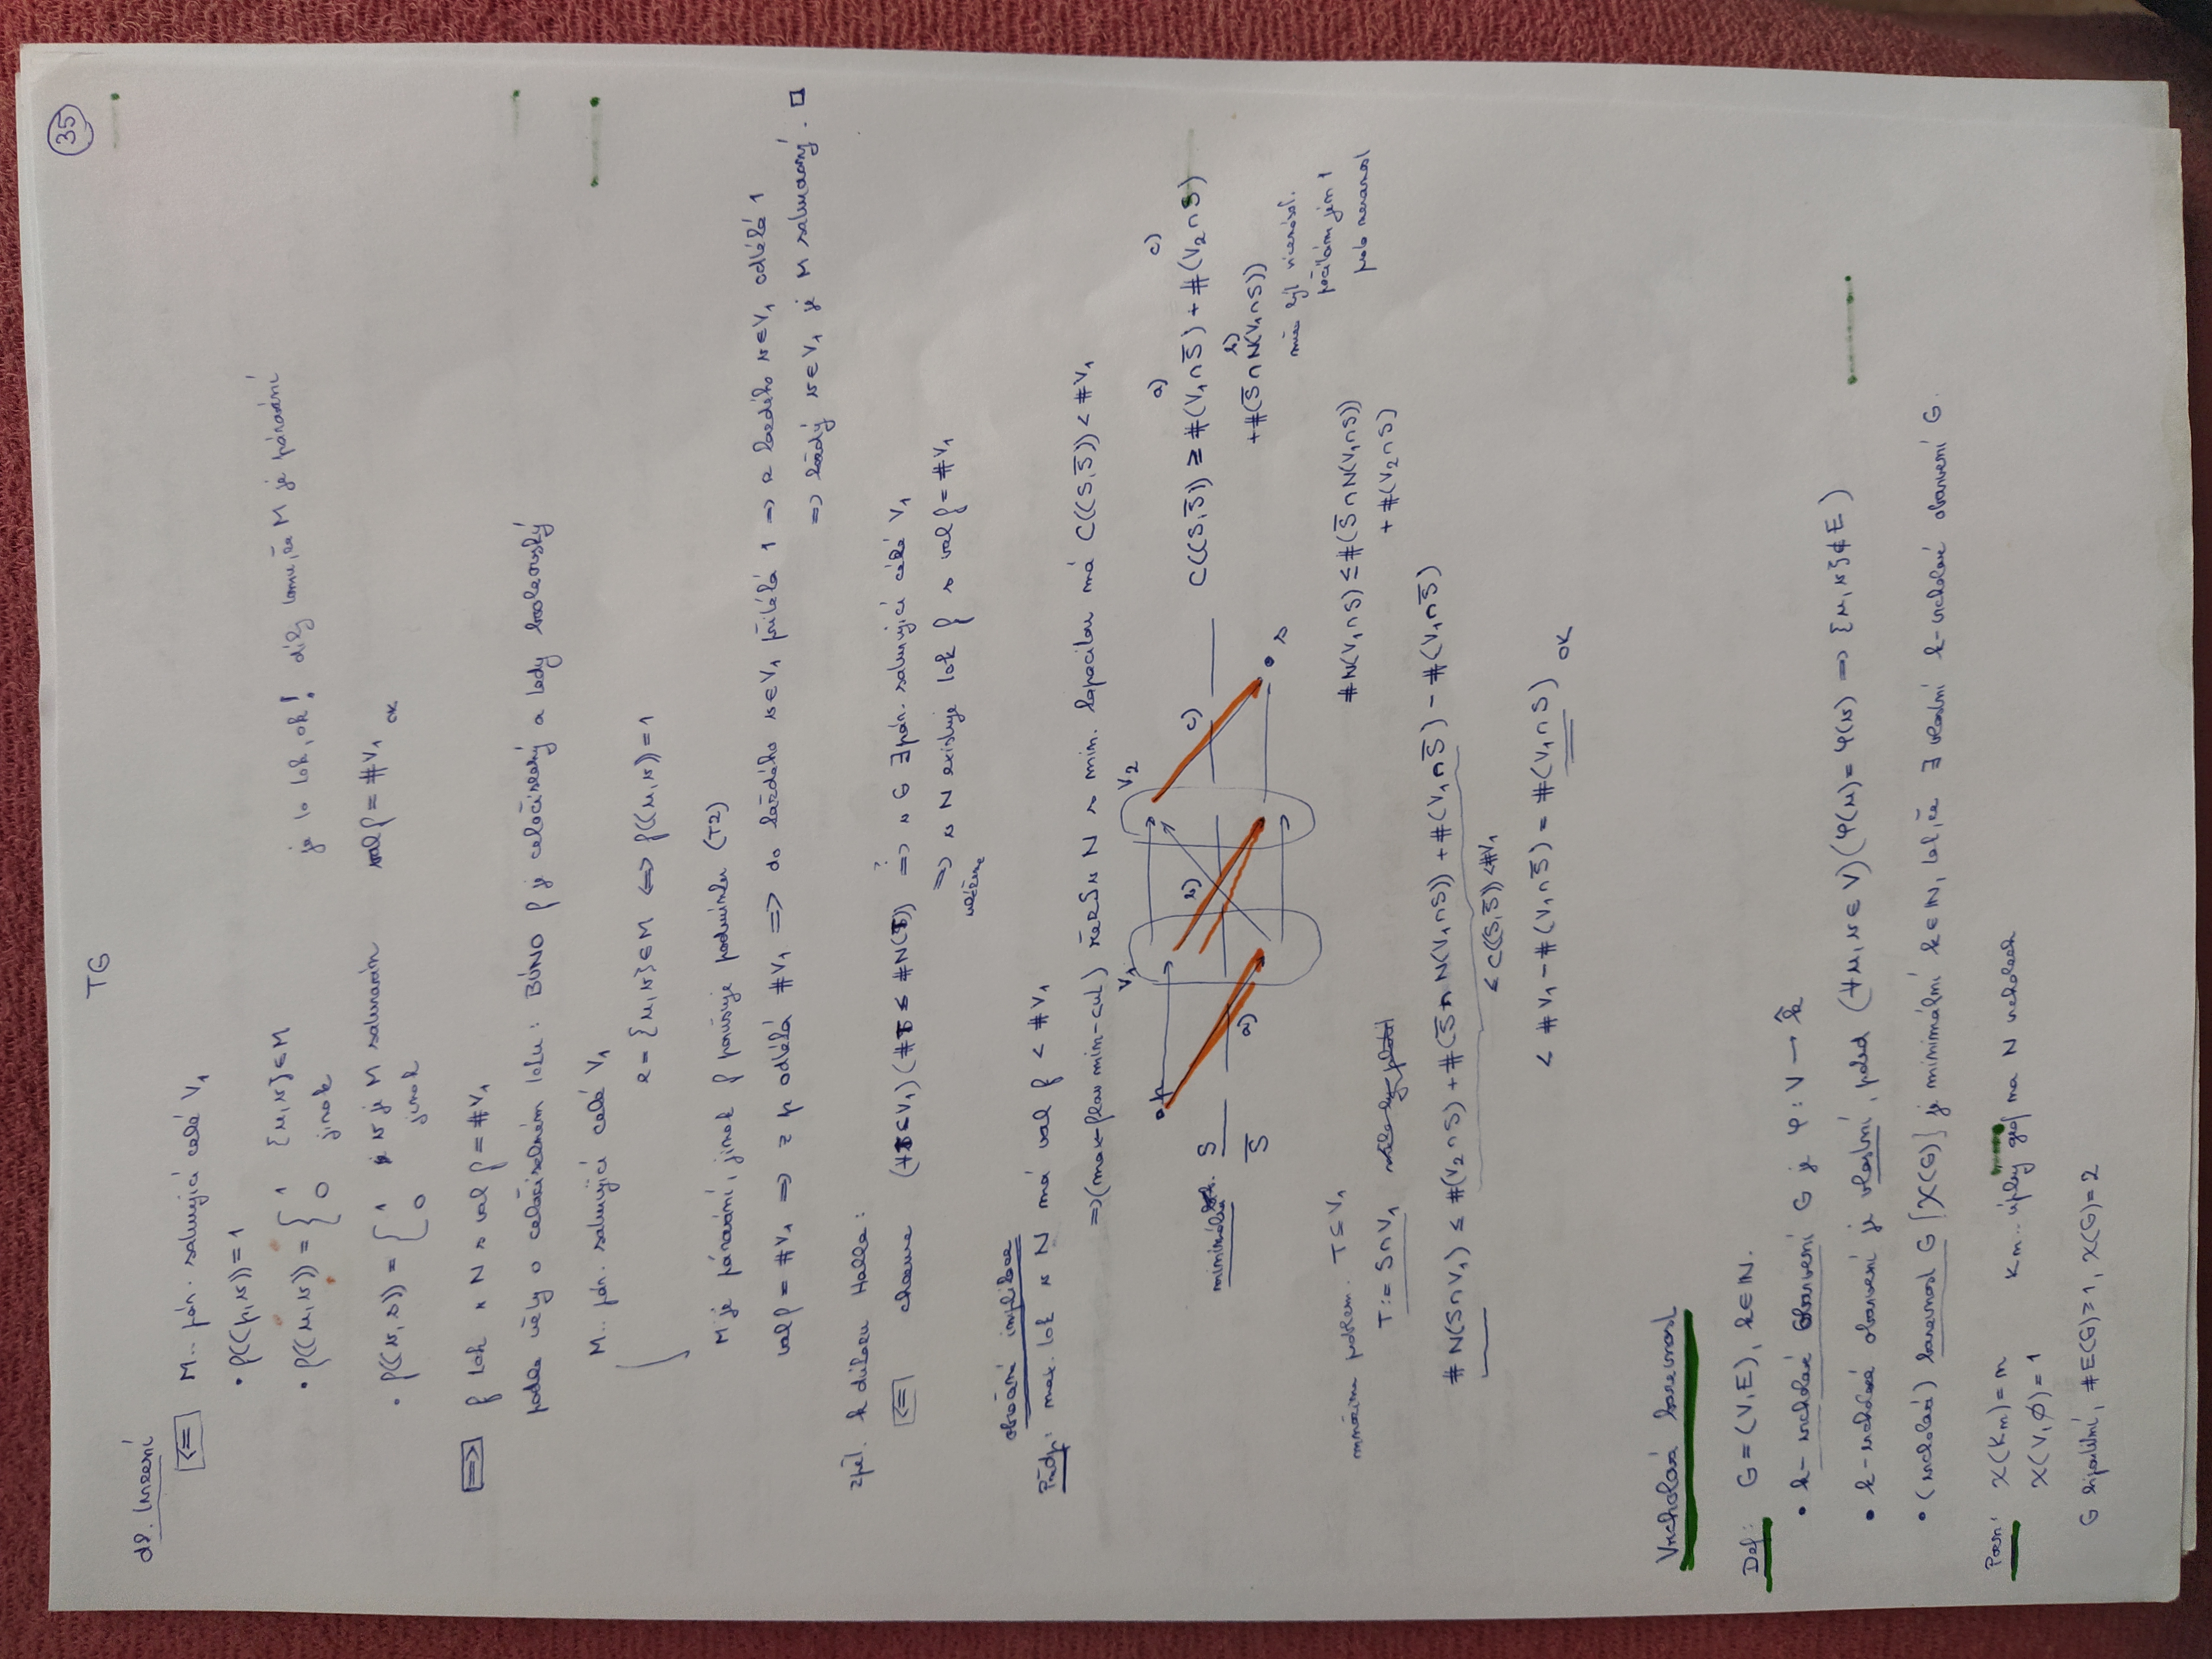 TG
35
dk. tvrzení
⇐ M.. pár. saturující celé V₁
• f((p,v))=1
• f((u,v)) = { 1 {u,v}∈M
0 jinak
je to tok, ok! díky tomu, že M je párování
• f((v,s)) = { 1 v je M saturován
0 jinak
val f = #V₁ OK
⇒ f tok v N s val f = #V₁
podle věty o celočíselném toku: BÚNO f je celočíselný a tedy booleovský
M.. pár. saturující celé V₁
e = {u,v}∈M ⇔ f((u,v))=1
M je párování, jinak f porušuje podmínku (T2)
val f = #V₁ ⇒ z p odtéká #V₁ ⇒ do každého v∈V₁ přitéká 1 ⇒ z každého v∈V₁ odtéká 1
⇒ každý v∈V₁ je M saturovaný. □
zpět. k důkazu Halla:
⇐ chceme (∀S⊆V₁)(#S ≤ #N(S)) ⇒ v G ∃ pár. saturující celé V₁
⇒ v N existuje tok f s val f = #V₁
ukážeme
obrácení implikace
Předp: max. tok v N má val f < #V₁
⇒ (max-flow min-cut) řez S v N s min. kapacitou má C((S,S̅)) < #V₁
V₁ V₂
p a) b) c) s
minimální S
S̅
a) c)
C((S,S̅)) ≥ #(V₁∩S̅) + #(V₂∩S)
b)
+#(S̅∩N(V₁∩S))
může být vícenásob.
počítám jen 1
#N(V₁∩S) ≤ #(S̅∩N(V₁∩S))
+ #(V₂∩S)
množina T⊆V₁
T:= S∩V₁
#N(S∩V₁) ≤ #(V₂∩S) + #(S̅∩N(V₁∩S)) + #(V₁∩S̅) - #(V₁∩S̅)
≤ C((S,S̅)) < #V₁
< #V₁ - #(V₁∩S̅) = #(V₁∩S) OK
Vrcholová barevnost
Def: G=(V,E), k∈ℕ.
• k-vrcholové obarvení G je φ: V → k̂
• k-vrcholové obarvení je vlastní, pokud (∀u,v∈V)(φ(u)=φ(v) ⇒ {u,v}∉E)
• (vrcholová) barevnost G [χ(G)] je minimální k∈ℕ, tak, že ∃ vlastní k-vrcholové obarvení G.
Pozn: χ(Kₙ)=n Kₙ.. úplný graf na n vrcholech
χ(V,∅)=1
G bipartitní, #E(G)≥1, χ(G)=2